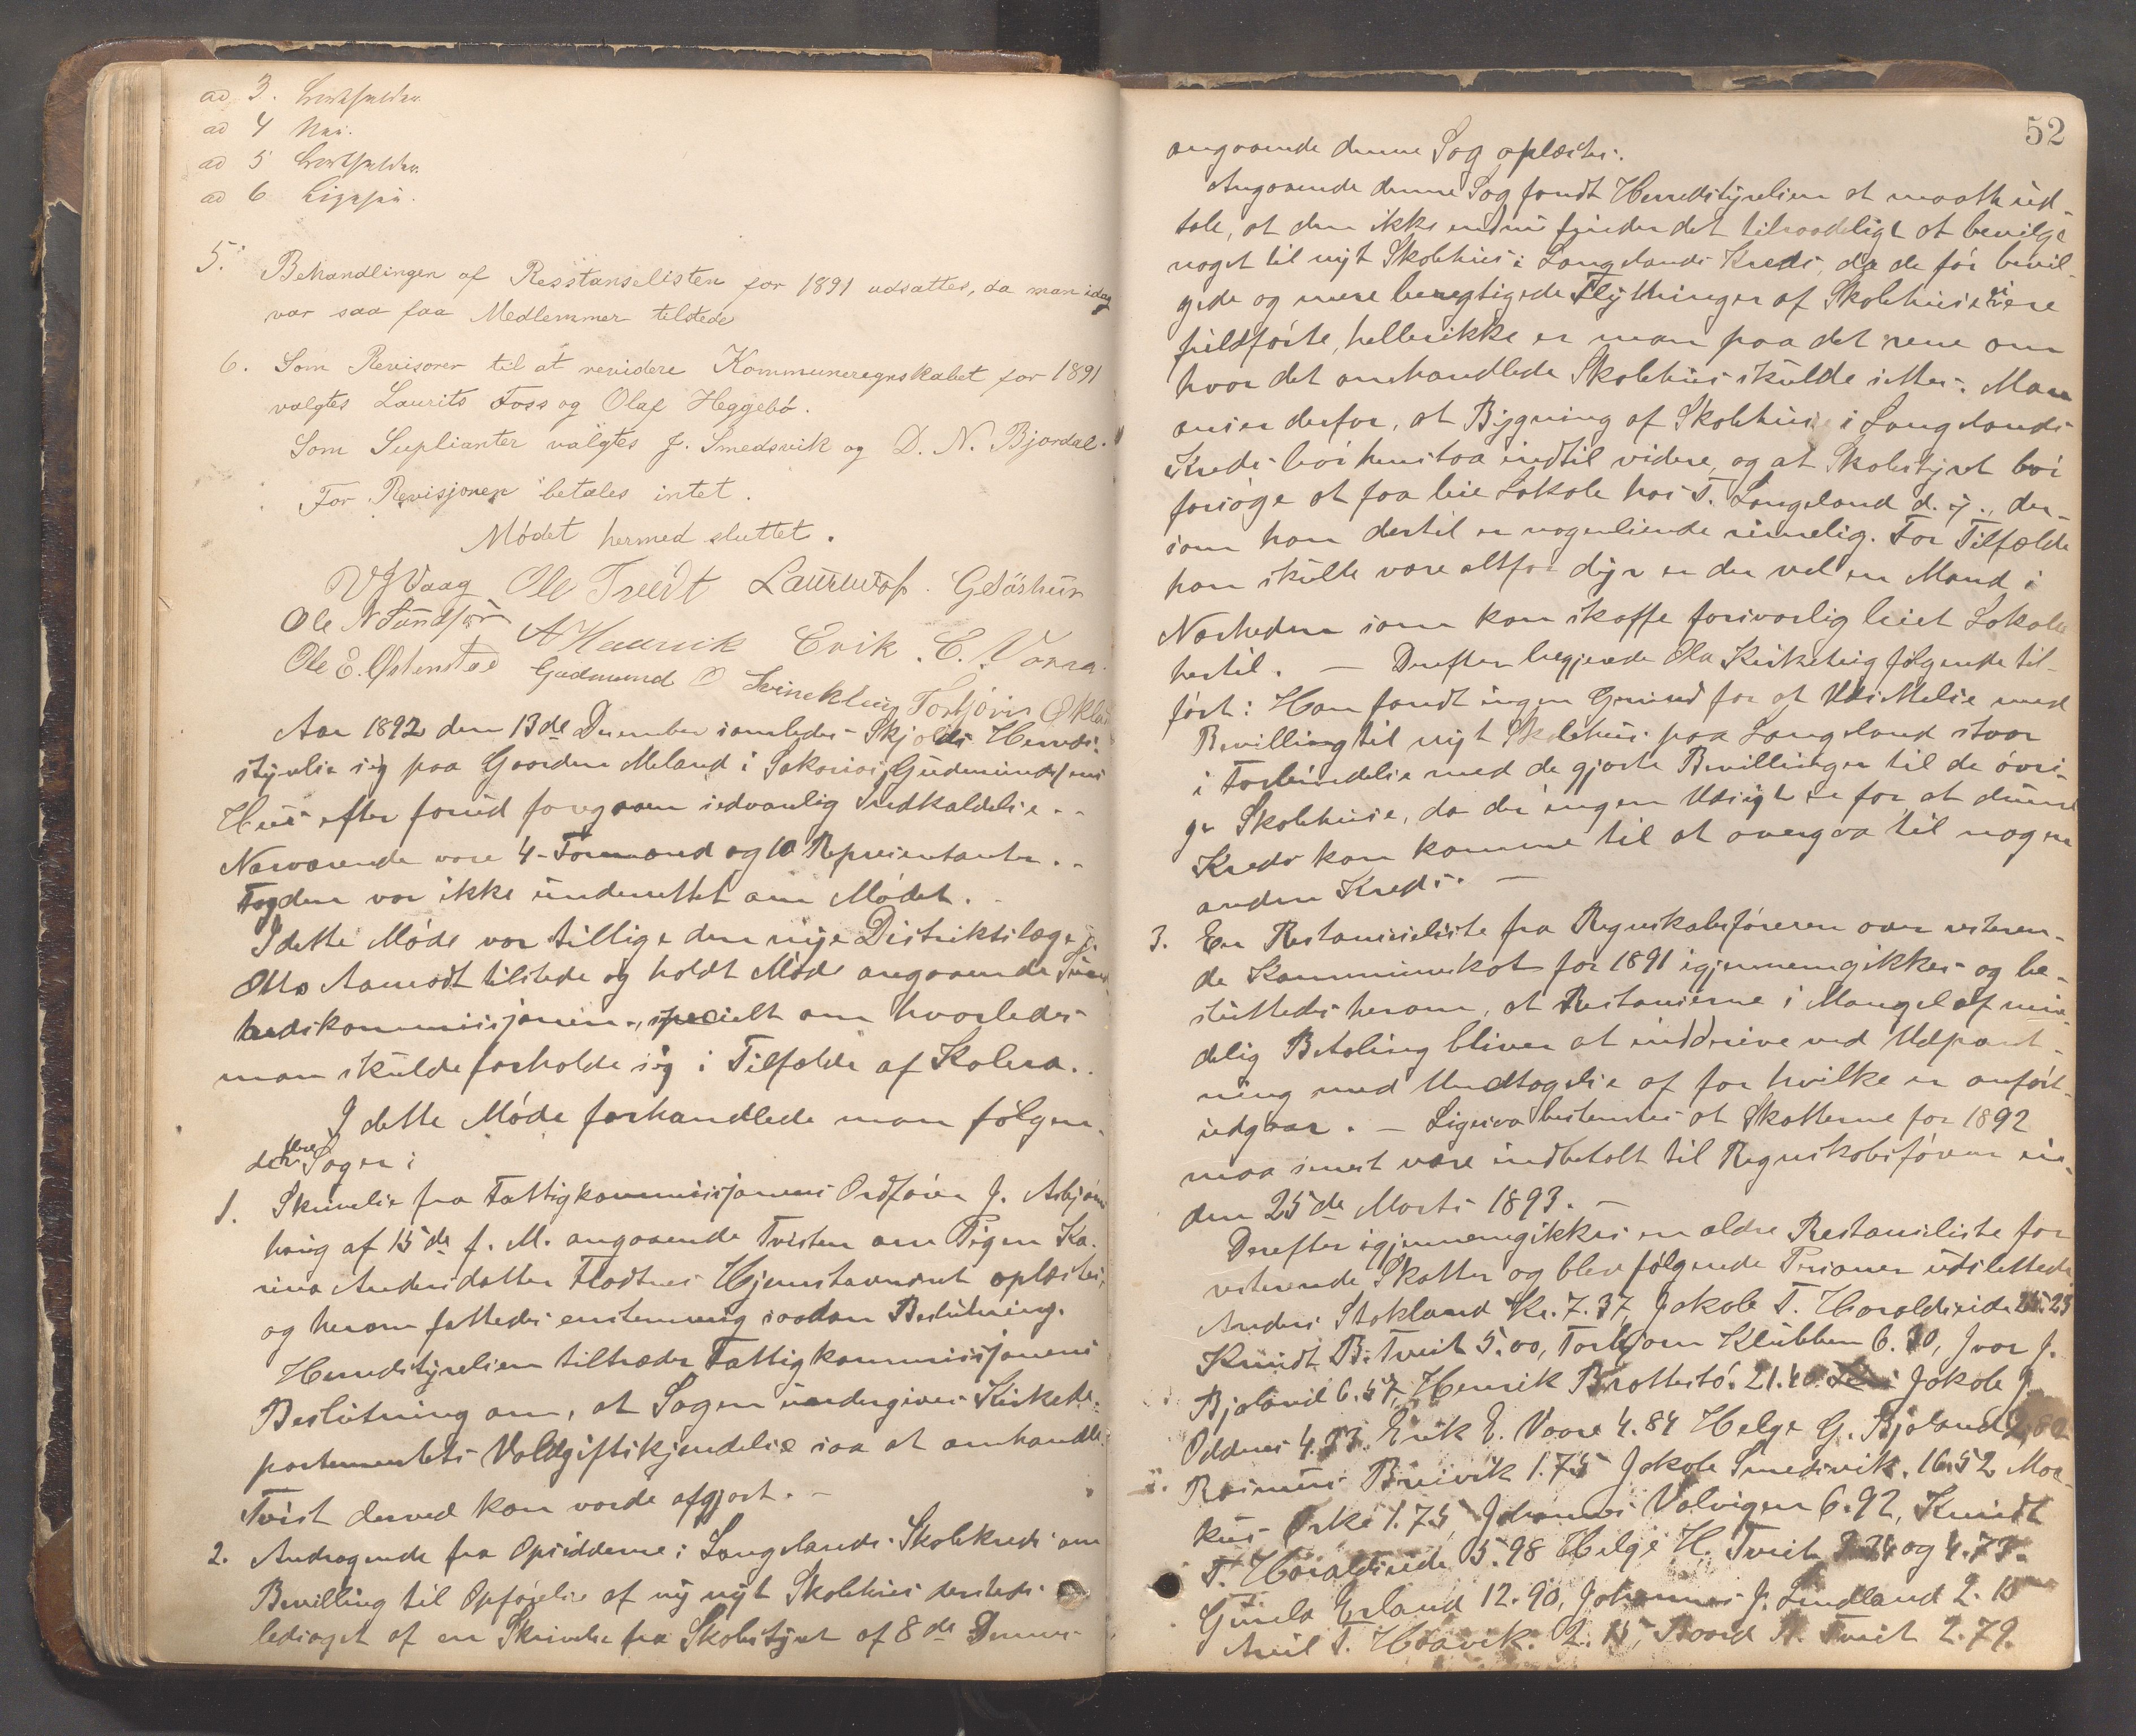 ad 3. Bortfalder.
ad 4 Nei.
ad 5 Bortfalder.
ad 6 Ligesaa.
5. Behandlingen af Resstanselisten for 1891 udsattes, da man idag
var saa faa Medlemmer tilstede
6. Som Revisorer til at revidere Kommuneregnskabet for 1891
valgtes Laurits Foss og Olaf Heggebö.
Som Suplianter valgtes J. Smedsvik og D. N. Bjordal.
For Revisjonen betales intet.
Mödet hermed sluttet.
VJ Vaag Ole Tveit Laurits Foss
Ole N Sundför A Haavik Erik E. Vorra
Ole E. Østensted Gudmund O Torbjörn Økla
Aar 1892 den 13de December samledes Skjolds Herreds-
styrelse sig paa Gaarden Meland i Sakarias Gudmundsens
Hus efter forud foregaaen sedvanlig Indkaldelse. -
Nærværende vare 4 Formænd og 10 Repræsentanter. -
Fogden var ikke underrettet om Mödet. -
I dette Möde var tillige den nye Distriktslæge
Otto Aamodt tilstede og holdt Möde angaaende Sund-
hedskommissjonen, specielt om hvorledes
man skulde forholde sig i Tilfælde af Kolera. -
I dette Möde forhandlede man følgen-
de Sager:
1. Skrivelse fra Fattigkommissjonens Ordförer J. Asbjörns
haug af 15de f. M. angaaende Tvisten om Pigen Ka-
rina Andersdatter Flodtnes Hjemstavnsret oplæstes,
og herom fattedes enstemmig saadan Beslutning.
Herredsstyrelsen tiltræder Fattigkommissjonens
Beslutning om, at Sagen undergives Kirkede-
partementets Voldgiftskjendelse saa at omhandle
Tvist derved kan vorde afgjort. -
2. Andragende fra Opsidderne i Langelands Skolekreds om
Bevilling til Opförelse af ny nyt Skolehus dersteds
ledsaget af en Skrivelse fra Skolestyret af 8de Decem-
52
angaaende denne Sag oplæstes.
Angaaende denne Sag fandt Herredsstyrelsen at maatte ud-
tale, at den ikke endnu finder det tilraadeligt at bevilge
noget til nyt Skolehus i Langelands Kreds, da de för bevil-
gede og mere beregtigede Flytninger af Skolehuse ei ere
fuldförte, hellerikke er man paa det rene om
hvor det omhandlede Skolehus skulde settes. Man
anser derfor, at Bygning af Skolehus i Langelands
Kreds bör henstaa indtil videre, og at Skolestyret bör
forsöge at faa leie Lokale hos T. Langeland d. y., der-
som han dertil er nogenlunde rimelig. For Tilfælde
han skulle være altfor dyr er der vel en Mand i
Nærheden som kan skaffe forsvarlig leiet Lokale
hertil. — Derefter begjerede Ola Kirketeig følgende til-
fört: Han fandt ingen Grund for at Udsettelse med
Bevilling til nyt Skolehus paa Langeland staar
i Forbindelse med de gjorte Bevillinger til de övri-
ge Skolehuse, da der ingen Udsigt er for at denne
Kreds kan komme til at overgaa til nogen
anden Kreds. —
3. En Restanseliste fra Regnskabsföreren over resteren-
de Kommuneskat for 1891 igjennemgikkes og be-
sluttedes herom, at Restanserne i Mangel af min-
delig Betaling bliver at inddrive ved Udpant-
ning med Undtagelse af for hvilke er anfört
udgaar. — Ligesaa bestemtes at Skatterne for 1892
maa senest være indbetalt til Regnskabsförer in-
den 25de Marts 1893. —
Derefter igjennemgikkes en ældre Restanseliste for
resterende Skatter og blev følgende Personer udslettede
Anders Stokland Kr. 7.37, Jakob T. Haraldseide 25.23
Knudt B. Tveit 5.00, Torbjörn Klubben 6.20, Ivar J.
Bjoland 6.57, Henrik Brattestö. 21.40 Jakob J
Oddnes 4.73. Erik E. Vaare 4.84 Helge G. Bjoland 2,82
Rasmus Breivik 1.75 Jakob Smedsvik. 16.52 Mar-
kus Örke 1.75, Johannes Valvigen 6.92, Knudt
T. Haraldseide 5.98 Helge H. Tveit 7.24 og 4.73.
Gunla Erland 12.90, Johannes J. Lindland 2.10
T. Haavik. 2.15, Baard A. Tveit 2.79.